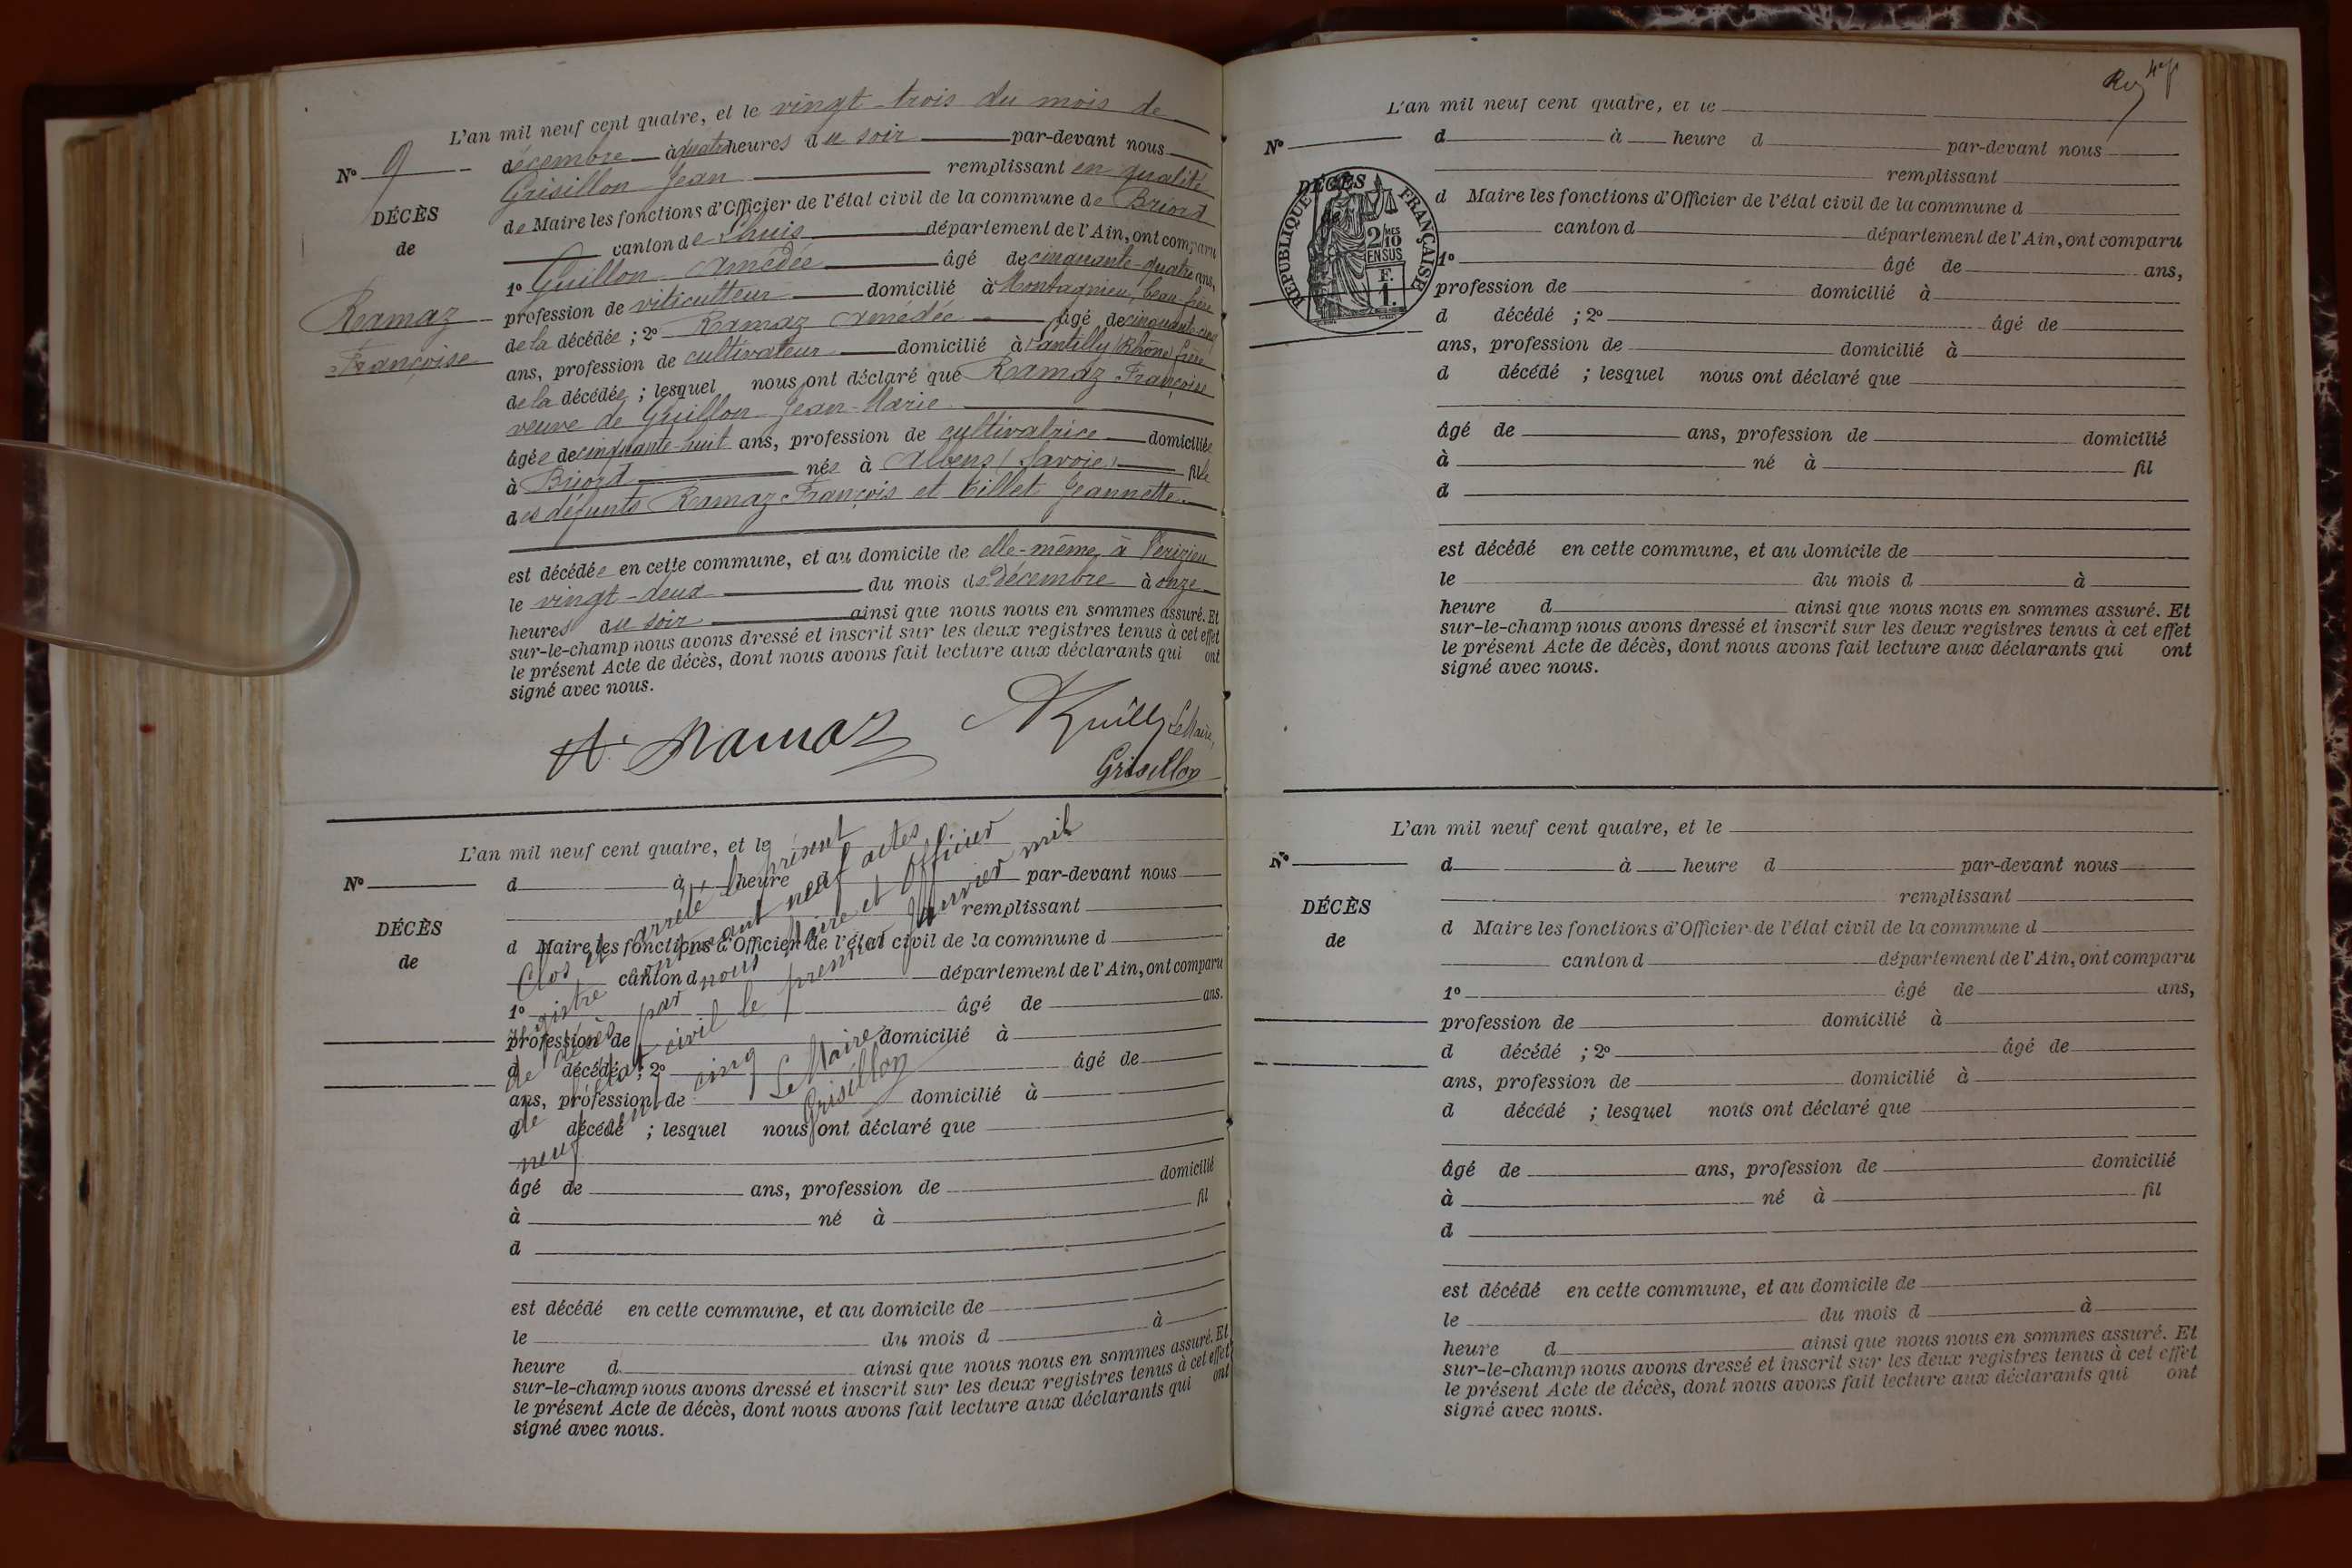 L'an mil neuf cent quatre, et le vingt-trois du mois de
N° 9
décembre à quatre heures du soir par-devant nous
Grisillon Jean remplissant en qualité
DÉCÈS
de Maire les fonctions d'Officier de l'état civil de la commune de Briord
de
canton de Lhuis département de l'Ain, ont comparu
1° Guillon Amédée âgé de cinquante-quatre ans,
Ramaz
profession de viticulteur domicilié à Montagnieu, beau-frère
Françoise
de la décédée ; 2° Ramaz Amédée âgé de cinquante-cinq
ans, profession de cultivateur domicilié à (Rhône) frère
de la décédée ; lesquel nous ont déclaré que Ramaz Françoise
veuve de Guillon Jean-Marie
âgée de cinquante-huit ans, profession de cultivatrice domiciliée
à Briord née à Albens (Savoie) fille
des défunts Ramaz François et Billet Jeannette
est décédée en cette commune, et au domicile de elle-même, à Vérizieu
le vingt-deux du mois de décembre à onze
heures du soir ainsi que nous nous en sommes assuré. Et
sur-le-champ nous avons dressé et inscrit sur les deux registres tenus à cet effet
le présent Acte de décès, dont nous avons fait lecture aux déclarants qui ont
signé avec nous.
A. Ramaz
Le Maire,
Grisillon
L'an mil neuf cent quatre, et le
N°
d à heure d par-devant nous
remplissant
DÉCÈS
d Maire les fonctions d'Officier de l'état civil de la commune d
de
canton d département de l'Ain, ont comparu
1° âgé de ans.
profession de domicilié à
d décédé ; 2° âgé de
ans, profession de domicilié à
d décédé ; lesquel nous ont déclaré que
âgé de ans, profession de domicilié
à né à fil
d
est décédé en cette commune, et au domicile de
le du mois d à
heure d ainsi que nous nous en sommes assuré. Et
sur-le-champ nous avons dressé et inscrit sur les deux registres tenus à cet effet
le présent Acte de décès, dont nous avons fait lecture aux déclarants qui ont
signé avec nous.
Clos et arrêté le présent
registre contenant neuf actes
de décès par nous Maire et Officier
de l'état civil le premier Janvier mil
neuf cent cinq
Le Maire
Grisillon
L'an mil neuf cent quatre, et le
N°
d à heure d par-devant nous
remplissant
DÉCÈS
RÉPUBLIQUE FRANÇAISE
2/10 MES
EN SUS
F.
1.
d Maire les fonctions d'Officier de l'état civil de la commune d
canton d département de l'Ain, ont comparu
1° âgé de ans,
profession de domicilié à
d décédé ; 2° âgé de
ans, profession de domicilié à
d décédé ; lesquel nous ont déclaré que
âgé de ans, profession de domicilié
à né à fil
d
est décédé en cette commune, et au domicile de
le du mois d à
heure d ainsi que nous nous en sommes assuré. Et
sur-le-champ nous avons dressé et inscrit sur les deux registres tenus à cet effet
le présent Acte de décès, dont nous avons fait lecture aux déclarants qui ont
signé avec nous.
L'an mil neuf cent quatre, et le
N°
d à heure d par-devant nous
remplissant
DÉCÈS
d Maire les fonctions d'Officier de l'état civil de la commune d
de
canton d département de l'Ain, ont comparu
1° âgé de ans,
profession de domicilié à
d décédé ; 2° âgé de
ans, profession de domicilié à
d décédé ; lesquel nous ont déclaré que
âgé de ans, profession de domicilié
à né à fil
d
est décédé en cette commune, et au domicile de
le du mois d à
heure d ainsi que nous nous en sommes assuré. Et
sur-le-champ nous avons dressé et inscrit sur les deux registres tenus à cet effet
le présent Acte de décès, dont nous avons fait lecture aux déclarants qui ont
signé avec nous.